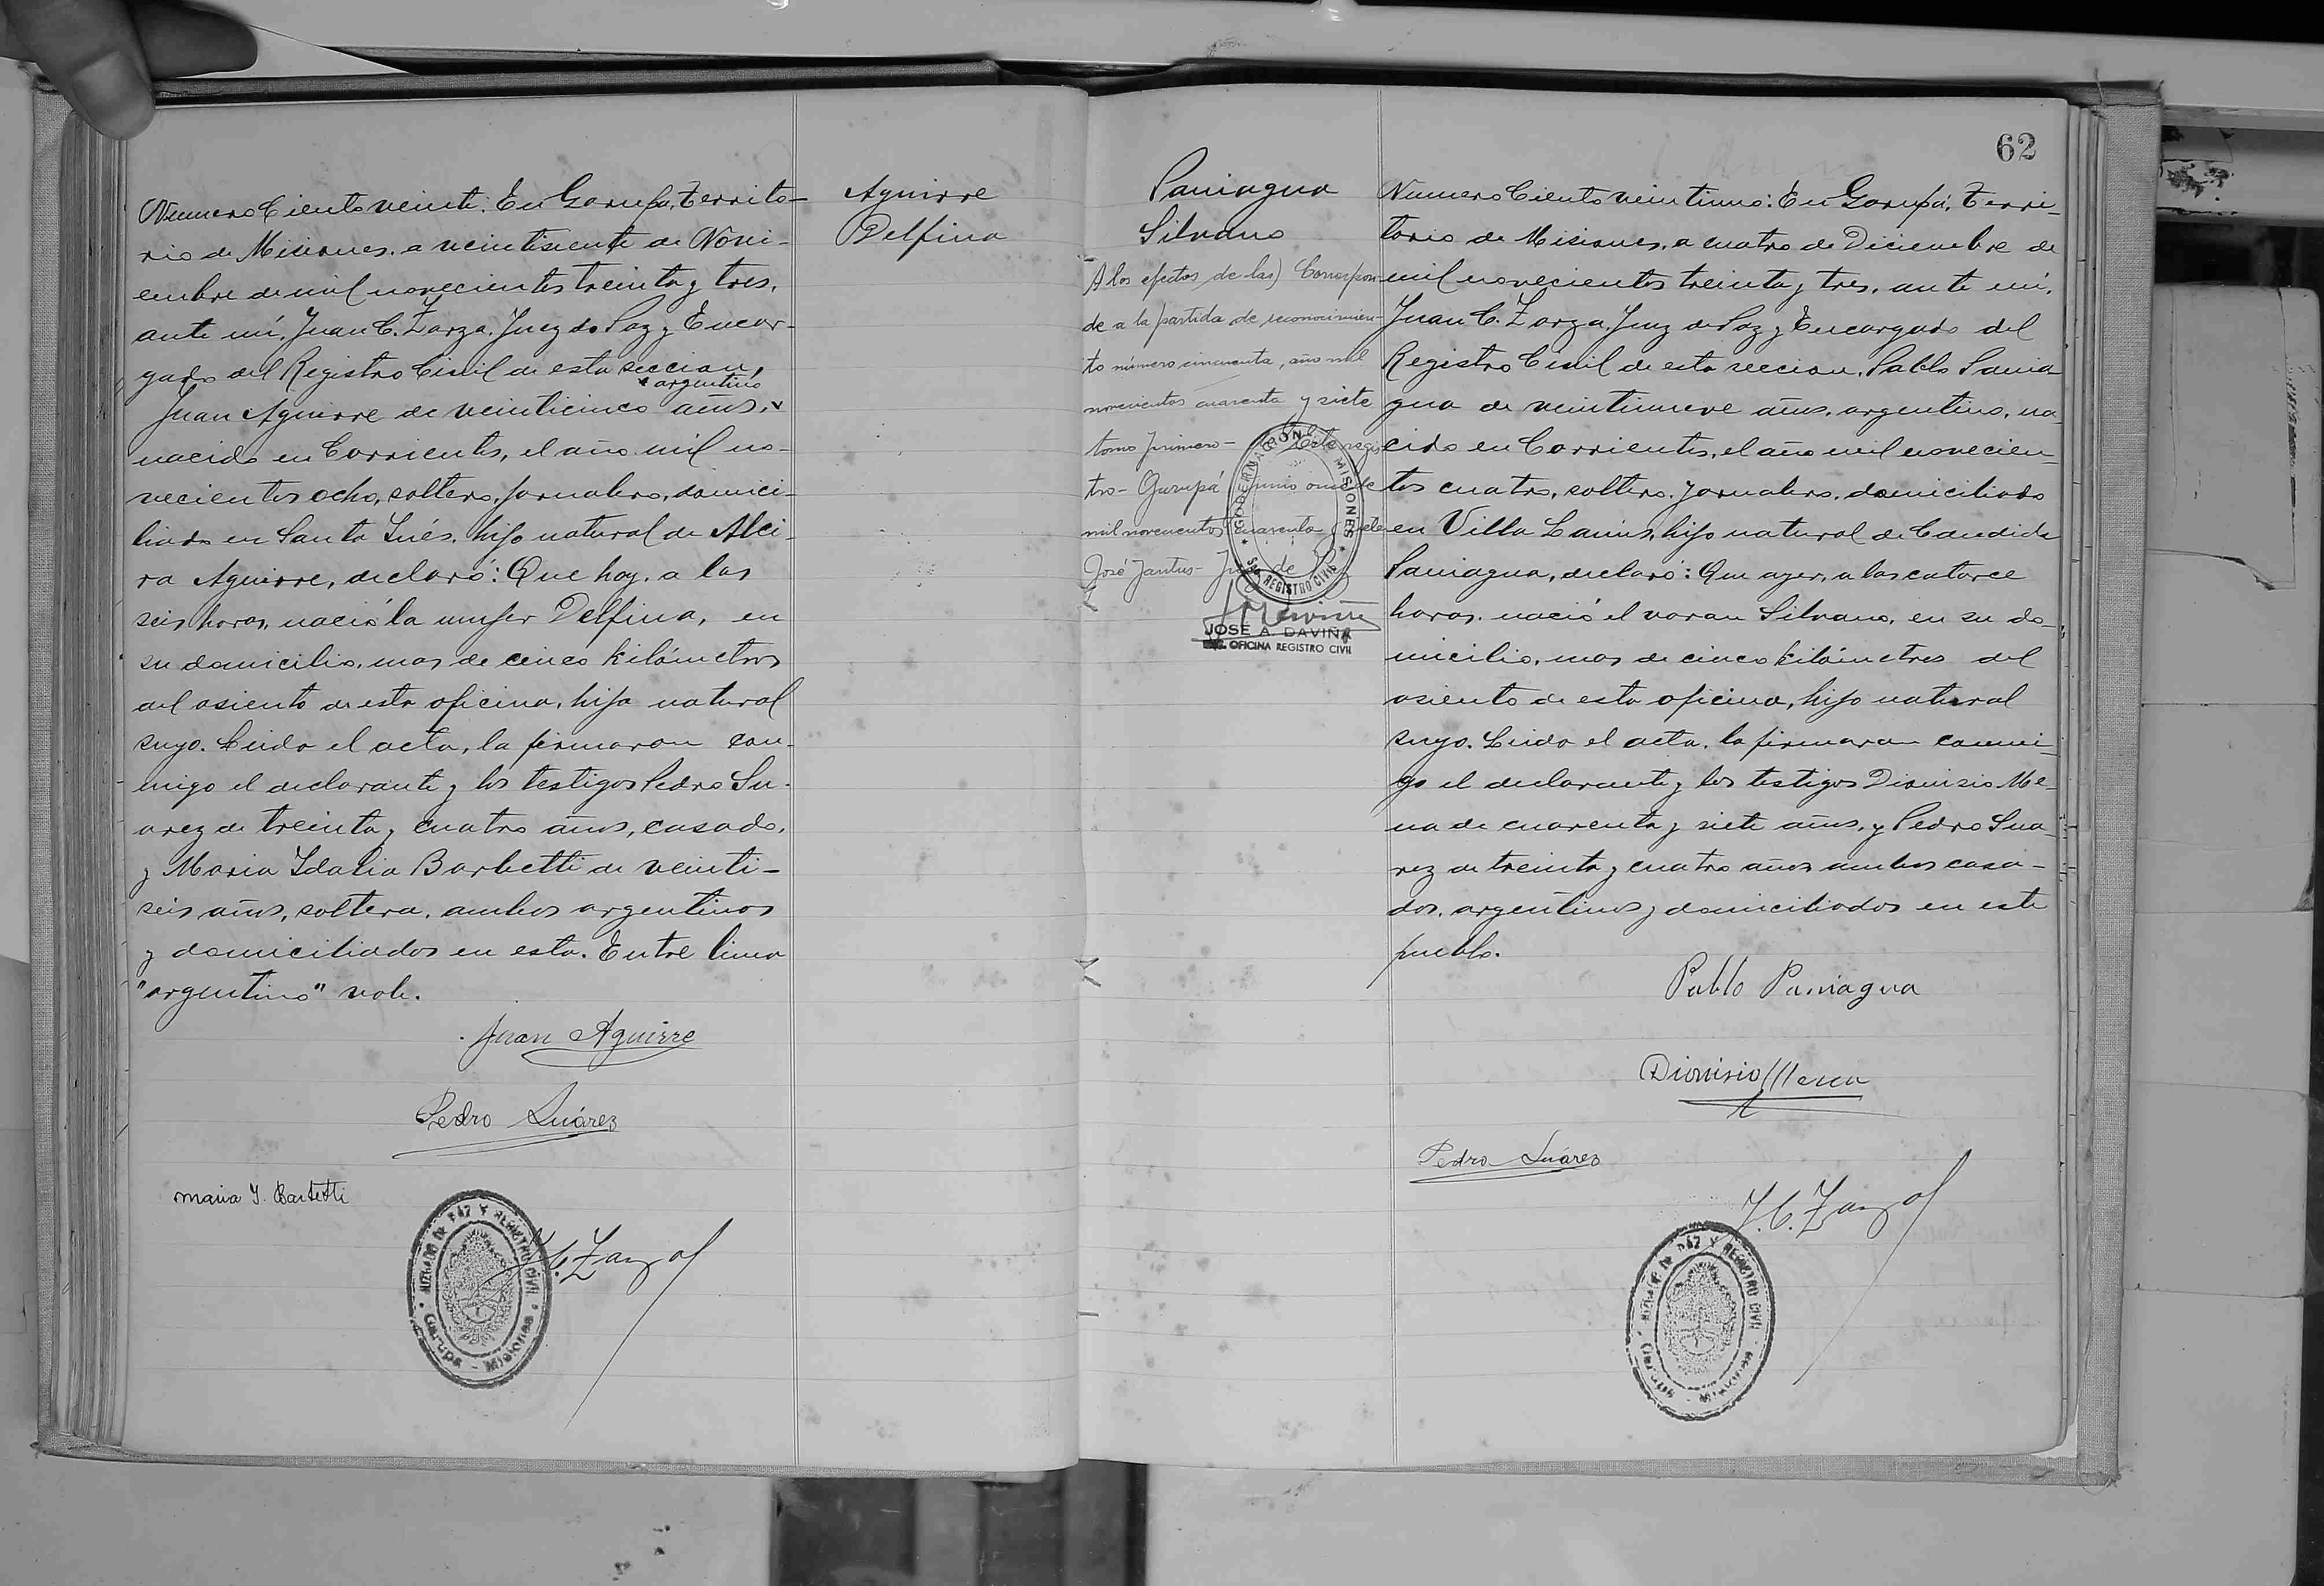 Numero Ciento veinte: En Garupá, Territo-
rio de Misiones, a veintisiente de Novi-
embre de mil novecientos treinta y tres,
ante mí, Juan C. Zarza, Juez de Paz y Encar-
gado del Registro Civil de esta seccion,
argentino
Juan Aguirre de veinticinco años,
nacido en Corrientes, el año mil no-
vecientos ocho, soltero, jornalero, domici-
liado en Santa Inés, hijo natural de Alci-
ra Aguirre, declaró: Que hoy, a las
seis horas, nació la mujer Delfina, en
su domicilio, mas de cinco kilómetros
del asiento de esta oficina, hija natural
suya. Leida el acta, la firmaron con-
migo el declarante y los testigos Pedro Su-
arez de treinta y cuatro años, casado,
y Maria Idalia Barbetti de veinti-
seis años, soltera, ambos argentinos
y domiciliados en esta. Entre linea
"argentino" vale.
Juan Aguirre
Pedro Suárez
Maria Y. Barbetti
J.C. Zarza
JUZGADO DE PAZ Y REGISTRO CIVIL
Garupá - Misiones
Aguirre
Delfina
62
Paniagua
Silvano
A los efectos de la(s) Correspon-
de a la partida de reconocimien-
to número cincuenta, año mil
novecientos cuarenta y siete
tomo primero - de este regis-
tro - Garupá junio once de
mil novecientos cuarenta y siete
José Jantus - Juez de Paz
GOBERNACION MISIONES
REGISTRO CIVIL
JOSE A. DAVIÑA
OFICINA REGISTRO CIVIL
Numero Ciento veintiuno: En Garupá, Terri-
torio de Misiones, a cuatro de Diciembre de
mil novecientos treinta y tres, ante mí,
Juan C. Zarza, Juez de Paz y Encargado del
Registro Civil de esta seccion, Pablo Pania-
gua de veintinueve años, argentino, na-
cido en Corrientes, el año mil novecien-
tos cuatro, soltero, jornalero, domiciliado
en Villa Lanús, hijo natural de Candida
Paniagua, declaró: Que ayer, a las catorce
horas, nació el varon Silvano, en su do-
micilio, mas de cinco kilómetros del
asiento de esta oficina, hijo natural
suyo. Leida el acta, la firmaron conmi-
go el declarante y los testigos Dionisio Me-
na de cuarenta y siete años, y Pedro Sua-
rez de treinta y cuatro años ambos casa-
dos, argentinos y domiciliados en este
pueblo.
Pablo Paniagua
Dionisio Mena
Pedro Suárez
J.C. Zarza
JUZGADO DE PAZ Y REGISTRO CIVIL
Garupá - Misiones